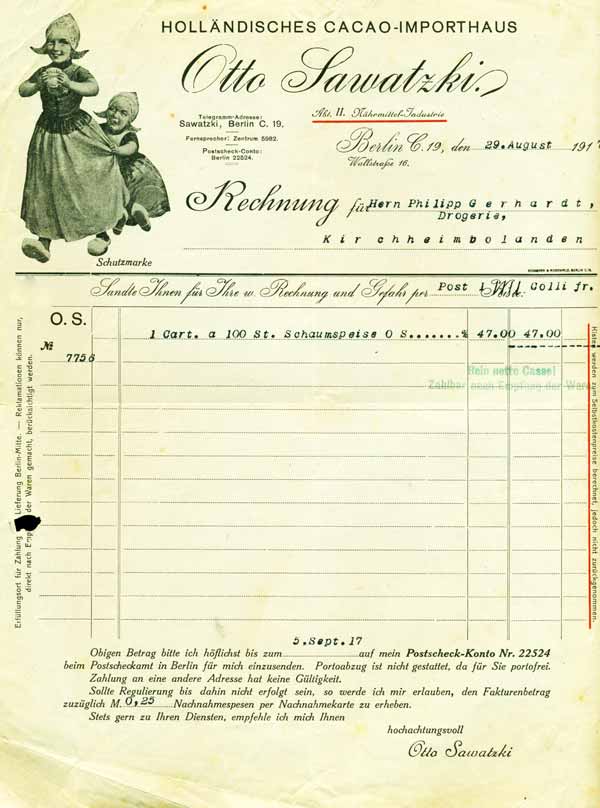 HOLLÄNDISCHES CACAO-IMPORTHAUS
Otto Sawatzki.
Abt. II. Nährmittel-Industrie
Telegramm-Adresse:
Sawatzki, Berlin C. 19.
Fernsprecher: Zentrum 5982.
Postscheck-Konto:
Berlin 22524.
Berlin C. 19, den 29. August 1917
Wallstraße 16.
Rechnung für Herrn Philipp Gerhardt,
Drogerie,
Kirchheimbolanden
Schutzmarke
Sandte Ihnen für Ihre w. Rechnung und Gefahr per Post 1 Colli fr.
O. S.
1 Cart. a 100 St. Schaumspeise O S....... 47.00 47.00
№
7756
Rein netto Cassa!
Zahlbar nach Empfang der Ware
Erfüllungsort für Zahlung Lieferung Berlin-Mitte. — Reklamationen können nur,
direkt nach der Waren gemacht, berücksichtigt werden.
Kisten werden zum Selbstkostenpreise berechnet, jedoch nicht zurückgenommen.
5. Sept. 17
Obigen Betrag bitte ich höflichst bis zum auf mein Postscheck-Konto Nr. 22524
beim Postscheckamt in Berlin für mich einzusenden. Portoabzug ist nicht gestattet, da für Sie portofrei.
Zahlung an eine andere Adresse hat keine Gültigkeit.
Sollte Regulierung bis dahin nicht erfolgt sein, so werde ich mir erlauben, den Fakturenbetrag
zuzüglich M. 0,25 Nachnahmespesen per Nachnahmekarte zu erheben.
Stets gern zu Ihren Diensten, empfehle ich mich Ihnen
hochachtungsvoll
Otto Sawatzki